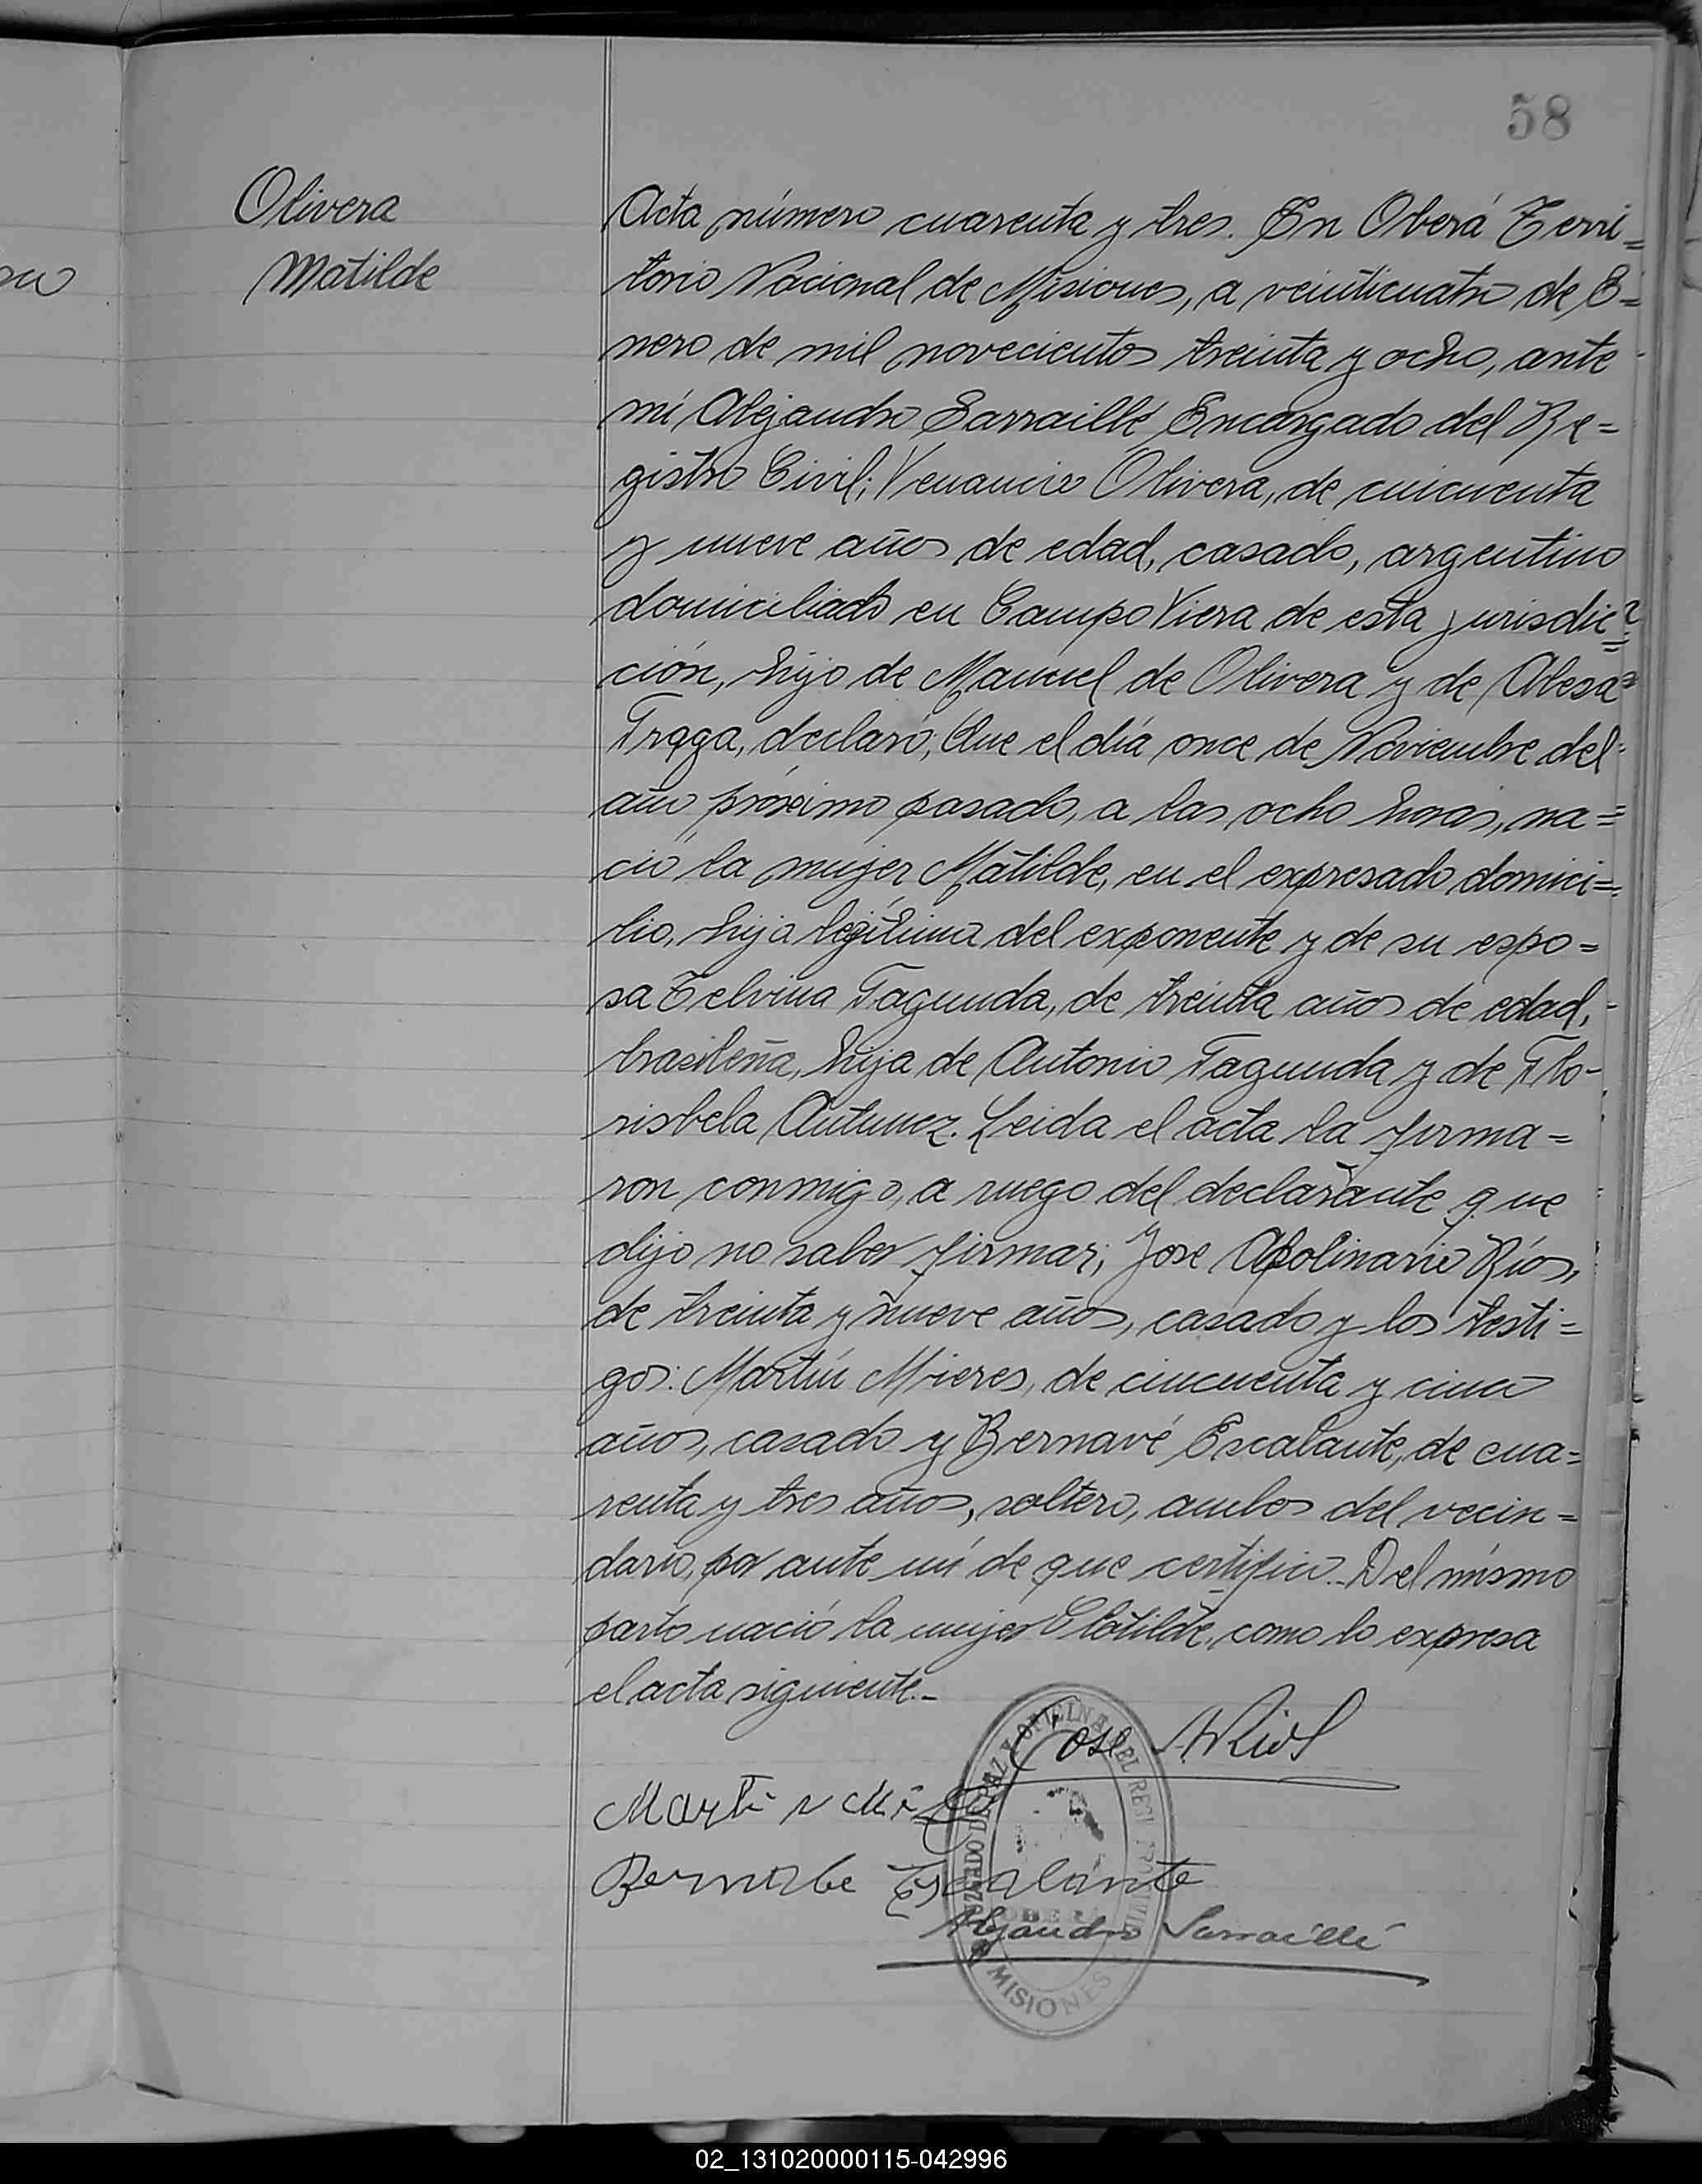 58
Olivera
Matilde
Acta número cuarenta y tres. En Oberá Terri=
torio Nacional de Misiones, a veinticuatro de E=
nero de mil novecientos treinta y ocho, ante
mí Alejandro Sarraillé Encargado del Re=
gistro Civil; Venancio Olivera, de cuicuenta
y nueve años de edad, casado, argentino
domiciliado en Campo Viera de esta jurisdic=
ción, hijo de Manuel de Olivera y de
declaró, Que el día once de Noviembre del
año próximo pasado, a las ocho horas, na=
ció la mujer Matilde, en el expresado domici=
lio, hija legítima del exponente y de su espo=
sa Telvina Fagunda, de treinta años de edad,
brasileña, hija de Antonio Fagunda y de Flo-
risbela Antunez. Leida el acta la firma=
ron conmigo, a ruego del declarante que
dijo no saber firmar; Jose Apolinario Ríos,
de treinta y nueve años, casado y los testi=
gos: Martín Mieres, de cincuenta y cinco
años, casado y Bernavé Escalante, de cua=
renta y tres años, soltero, ambos del vecin=
dario, por ante mí de que certifico.- Del mismo
parto nació la mujer Clotilde, como lo expresa
el acta siguiente.-
Jose A Rios
Martin
Bernabe Escalante
Alejandro Sarraillé
JUZGADO DE PAZ Y OFICINA DEL REGI CIVIL
OBERA
MISIONES
02_131020000115-042996